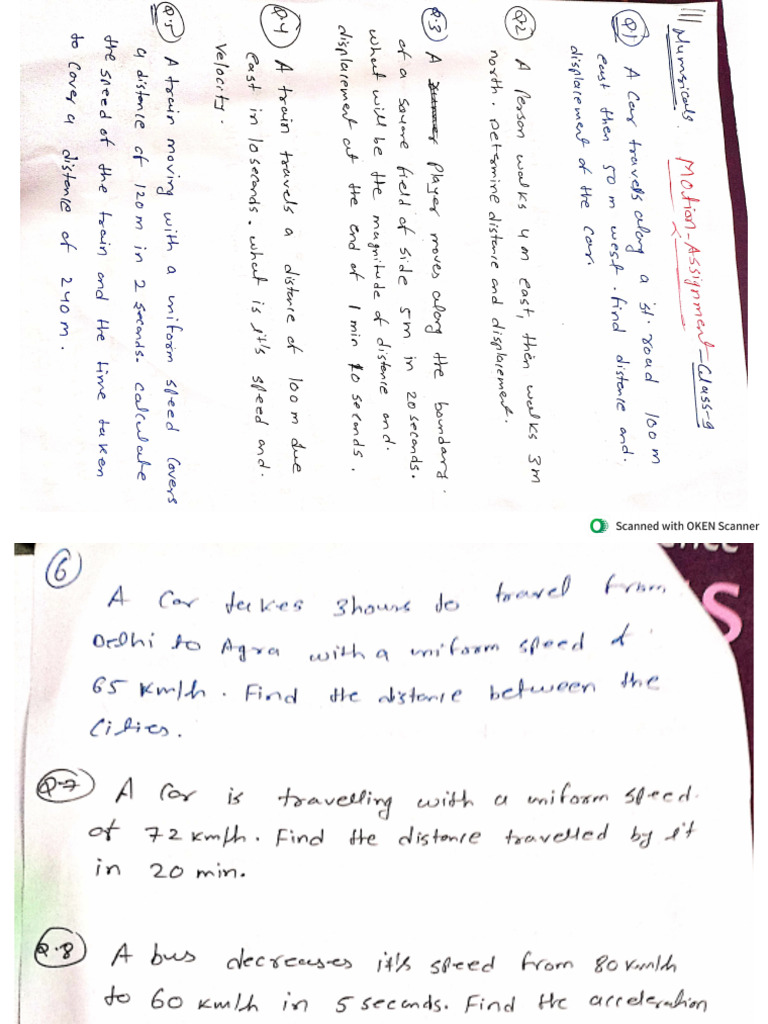 Numericals. Motion-Assignment-Class-9
Q1 A car travels along a st. road 100 m
east then 50 m west. find distance and.
displacement of the car.
Q2 A Person walks 4 m east, then walks 3m
north. Determine distance and displacement.
Q.3 A Player moves along the boundary.
of a square field of side 5m in 20 seconds.
what will be the magnitude of distance and.
displacement at the end of 1 min 20 seconds.
Q4 A train travels a distance of 100m due
east in 10 seconds. what is it's speed and.
Velocity.
Q.5 A train moving with a uniform speed covers
a distance of 120m in 2 seconds. calculate
the speed of the train and the time taken
to cover a distance of 240m.
Scanned with OKEN Scanner
6
A Car takes 3hours to travel from
Delhi to Agra with a uniform speed of
65 Km/h. Find the distance between the
Cities.
Q-7 A Car is travelling with a uniform speed.
of 72 km/h. Find the distance travelled by it
in 20 min.
Q.8 A bus decreases it's speed from 80 km/h
to 60 km/h in 5 seconds. Find the acceleration